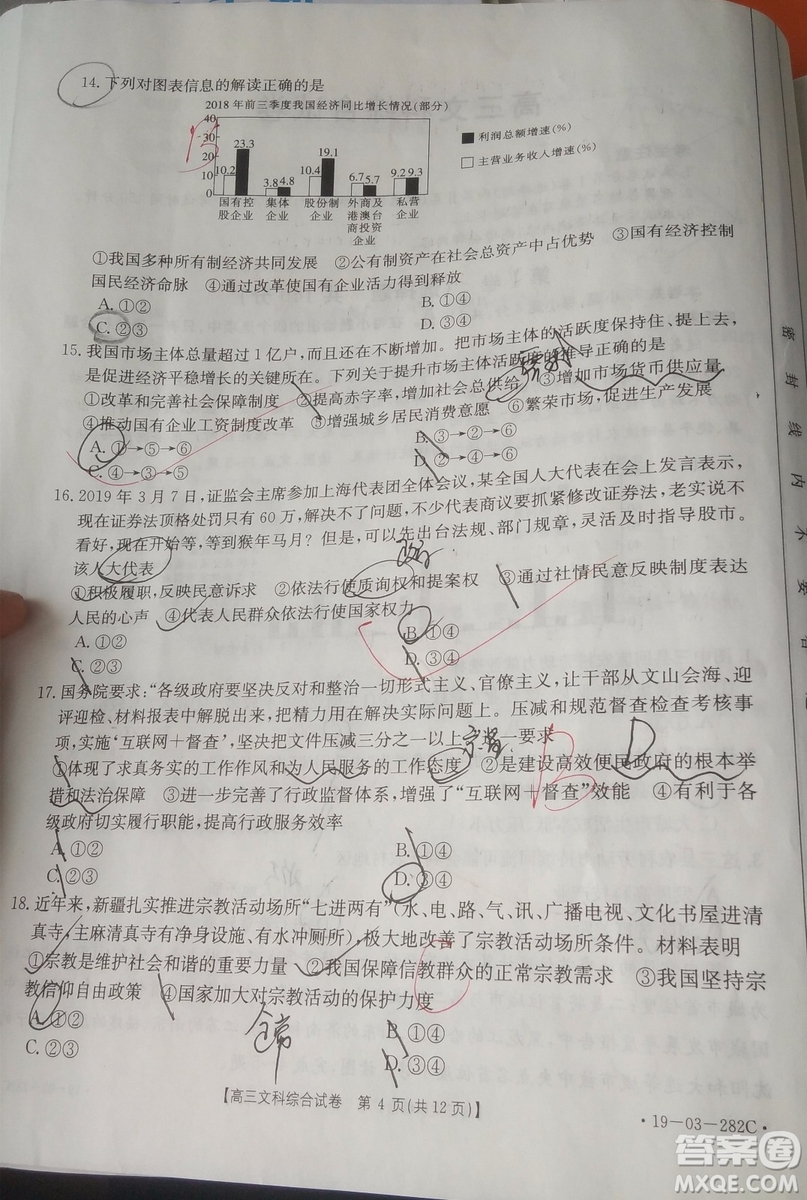 14. 下列对图表信息的解读正确的是
2018 年前三季度我国经济同比增长情况(部分)
40
30
20
10
0
10.2 23.3 3.8 4.8 10.4 19.1 6.7 5.7 9.2 9.3
■ 利润总额增速(%)
□ 主营业务收入增速(%)
国有控 集体 股份制 外商及 私营
股企业 企业 企业 港澳台 企业
商投资
企业
①我国多种所有制经济共同发展 ②公有制资产在社会总资产中占优势 ③国有经济控制
国民经济命脉 ④通过改革使国有企业活力得到释放
A. ①② B. ①④
C. ②③ D. ②④
15. 我国市场主体总量超过 1 亿户,而且还在不断增加。把市场主体的活跃度保持住、提上去,
是促进经济平稳增长的关键所在。下列关于提升市场主体活跃度的推导正确的是
①改革和完善社会保障制度 ②提高赤字率,增加社会总供给 ③增加市场货币供应量
④推动国有企业工资制度改革 ⑤增强城乡居民消费意愿 ⑥繁荣市场,促进生产发展
A. ①→⑤→⑥ B. ③→②→⑥
C. ④→③→⑤ D. ②→④→⑤
16. 2019 年 3 月 7 日,证监会主席参加上海代表团全体会议,某全国人大代表在会上发言表示,
现在证券法顶格处罚只有 60 万,解决不了问题,不少代表商议要抓紧修改证券法,老实说不
看好,现在开始等,等到猴年马月? 但是,可以先出台法规、部门规章,灵活及时指导股市。
该人大代表
①积极履职,反映民意诉求 ②依法行使质询权和提案权 ③通过社情民意反映制度表达
人民的心声 ④代表人民群众依法行使国家权力
A. ①② B. ①④
C. ②③ D. ③④
17. 国务院要求:“各级政府要坚决反对和整治一切形式主义、官僚主义,让干部从文山会海、迎
评迎检、材料报表中解脱出来,把精力用在解决实际问题上。压减和规范督查检查考核事
项,实施‘互联网+督查’,坚决把文件压减三分之一以上。”这一要求
①体现了求真务实的工作作风和为人民服务的工作态度 ②是建设高效便民政府的根本举
措和法治保障 ③进一步完善了行政监督体系,增强了“互联网+督查”效能 ④有利于各
级政府切实履行职能,提高行政服务效率
A. ①② B. ①④
C. ②③ D. ③④
B D
18. 近年来,新疆扎实推进宗教活动场所“七进两有”(水、电、路、气、讯、广播电视、文化书屋进清
真寺,主麻清真寺有净身设施、有水冲厕所),极大地改善了宗教活动场所条件。材料表明
①宗教是维护社会和谐的重要力量 ②我国保障信教群众的正常宗教需求 ③我国坚持宗
教信仰自由政策 ④国家加大对宗教活动的保护力度
A. ①② B. ①④
C. ②③ D. ③④
【高三文科综合试卷 第 4 页(共 12 页)】
·19-03-282C·
密封线内不要答
答案圈
MXQE.COM